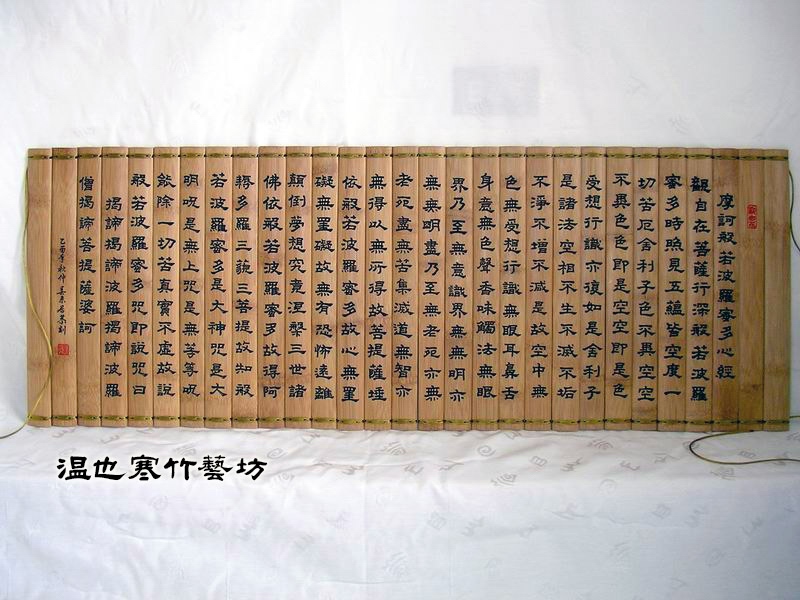 摩訶般若波羅蜜多心經
觀自在菩薩行深般若波羅
蜜多時照見五蘊皆空度一
切苦厄舍利子色不異空空
不異色色即是空空即是色
受想行識亦復如是舍利子
是諸法空相不生不滅不垢
不淨不增不減是故空中無
色無受想行識無眼耳鼻舌
身意無色聲香味觸法無眼
界乃至無意識界無無明亦
無無明盡乃至無老死亦無
老死盡無苦集滅道無智亦
無得以無所得故菩提薩埵
依般若波羅蜜多故心無罣
礙無罣礙故無有恐怖遠離
顛倒夢想究竟涅槃三世諸
佛依般若波羅蜜多故得阿
耨多羅三藐三菩提故知般
若波羅蜜多是大神咒是大
明咒是無上咒是無等等咒
能除一切苦真實不虛故說
般若波羅蜜多咒即說咒曰
揭諦揭諦波羅揭諦波羅
僧揭諦菩提薩婆訶
乙酉年秋仲
温也寒竹藝坊